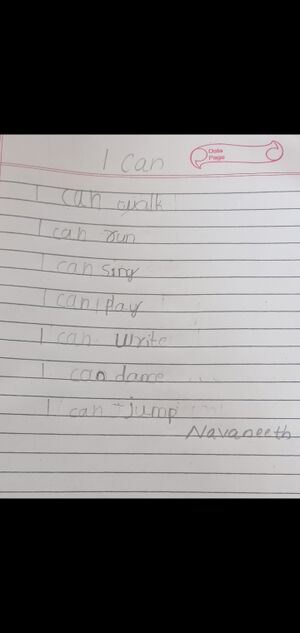 Date
Page
I can
I can walk
I can run
I can sing
I can play
I can write
I can dance
I can jump
Navaneeth